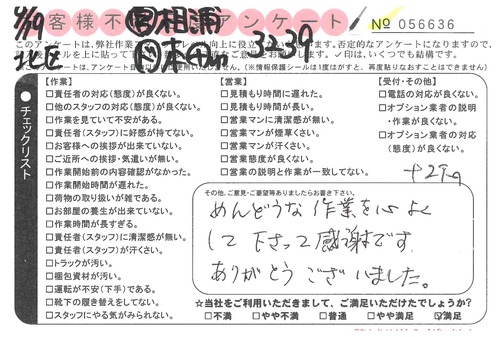 客様不
アンケート
No 056636
4/19
相浦
北区
3239
このアンケートは、弊社作業
否定的なアンケートになりますので、
✓印は、いくつでも結構です。
(※情報保護シールは1度はがすと、再度貼りなおすことはできません)
チェックリスト
【作業】
□責任者の対応(態度)が良くない。
□他のスタッフの対応(態度)が良くない。
□作業を見ていて不安がある。
□責任者(スタッフ)に好感が持てない。
□お客様への挨拶が出来ていない。
□ご近所への挨拶・気遣いが無い。
□作業開始前の内容確認がなかった。
□作業開始時間が遅れた。
□荷物の取り扱いが雑である。
□お部屋の養生が出来ていない。
□作業時間が長すぎる。
□責任者(スタッフ)に清潔感が無い。
□責任者(スタッフ)が汗くさい。
□トラックが汚い。
□梱包資材が汚い。
□運転が不安(下手)である。
□靴下の履き替えをしてない。
□スタッフにやる気がみられない。
【営業】
□見積もり時間に遅れた。
□見積もり時間が長い。
□営業マンに清潔感が無い。
□営業マンが煙草くさい。
□営業マンが汗くさい。
□営業態度が良くない。
□営業の説明と作業が一致してない。
【受付・その他】
□電話の対応が良くない。
□オプション業者の説明
・作業が良くない。
□オプション業者の対応
(態度)が良くない。
その他、ご意見・ご要望等ありましたらお書き下さい。
めんどうな作業を心よく
して下さって感謝です。
ありがとうございました。
☆当社をご利用いただきまして、ご満足いただけたでしょうか?
□不満 □やや不満 □普通 □やや満足 ☑満足